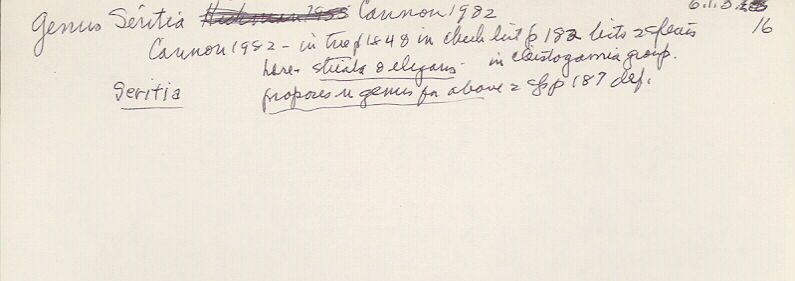 Genus Seritia Hickman 1955 Cannon 1982 6.1.3
16
Cannon 1982 - in tree p 184 & in check list p 182 lists 2 species
here - striata & elegans - in cleistogamia group.
Seritia proposes n genus for above 2 spp p 187 def.